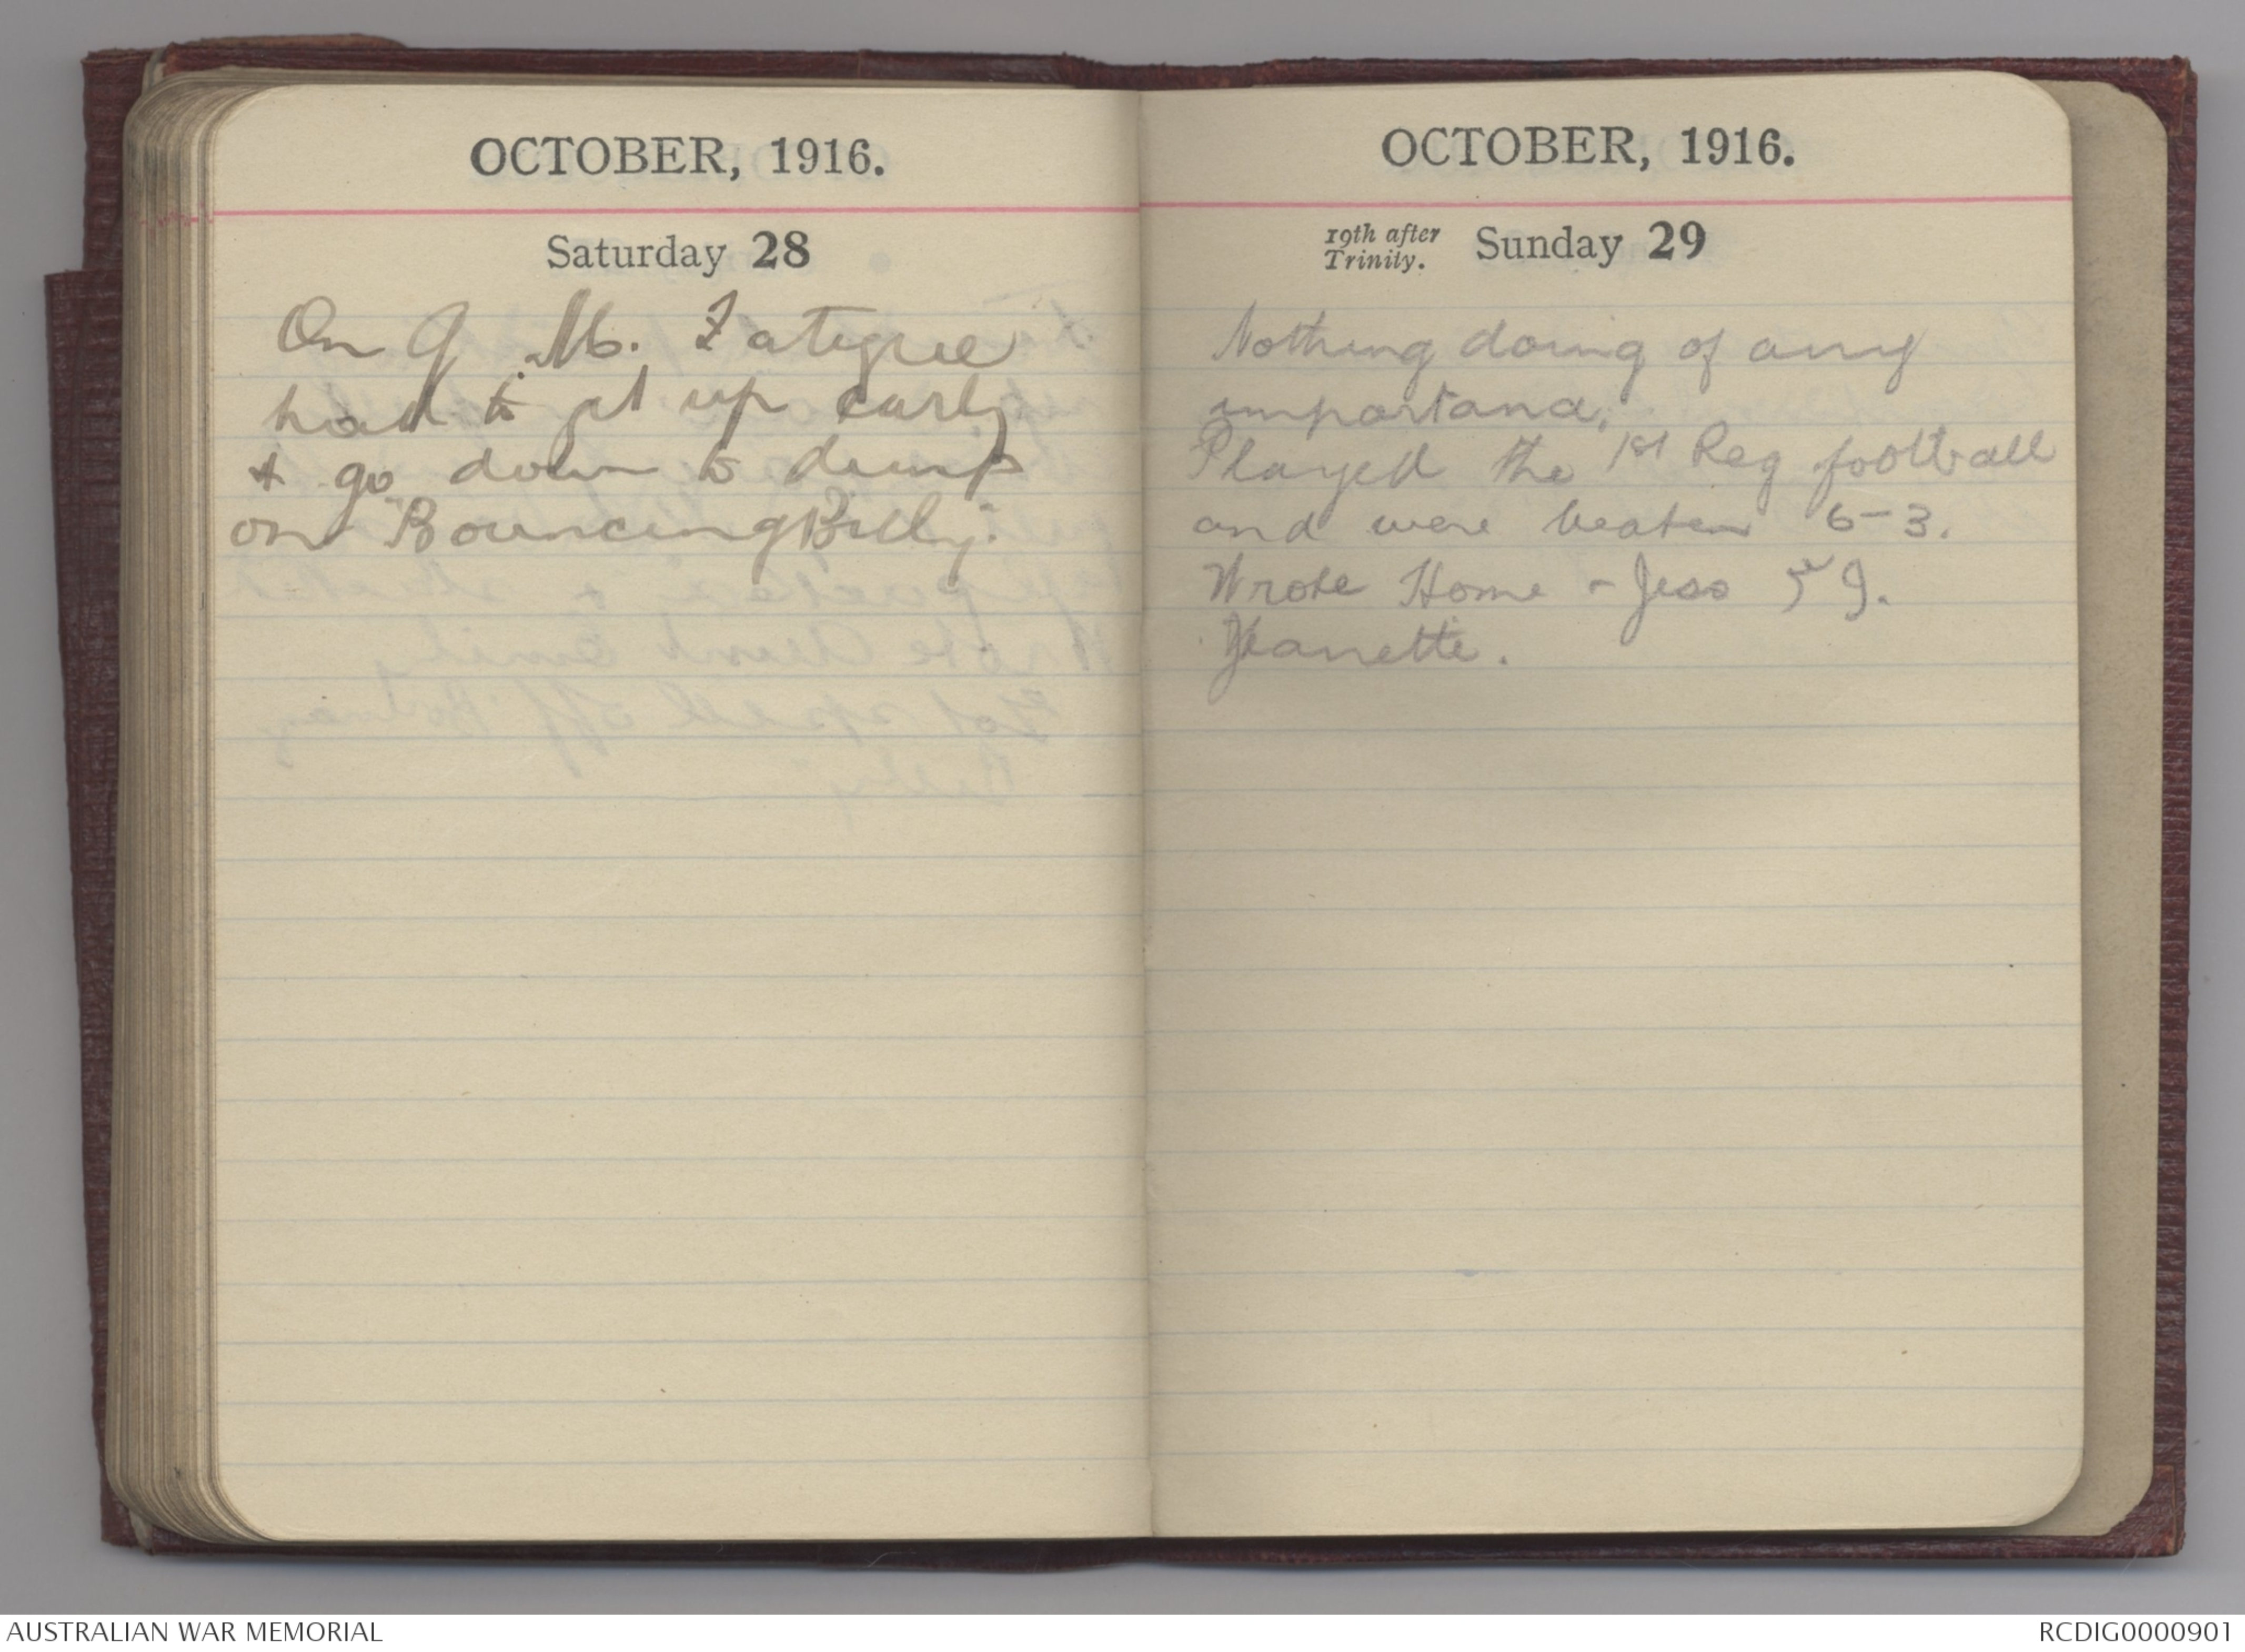 OCTOBER, 1916.
Saturday 28
On Q.M. Fatigue
had to get up early
+ go down to dump
on "Bouncing Billy".
OCTOBER, 1916.
19th after
Trinity.
Sunday 29
Nothing doing of any
importance.
Played the 1st Reg football
and were beaten 6-3.
Wrote Home - Jess & J.
Jeanette.
AUSTRALIAN WAR MEMORIAL
RCDIG0000901